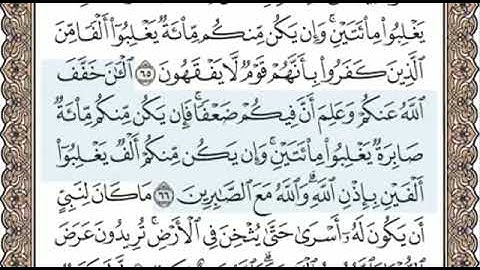 يَغْلِبُوا۟ مِا۟ئَتَيْنِ ۚ وَإِن يَكُن مِّنكُم مِّا۟ئَةٌ يَغْلِبُوٓا۟ أَلْفًا مِّنَ
ٱلَّذِينَ كَفَرُوا۟ بِأَنَّهُمْ قَوْمٌ لَّا يَفْقَهُونَ ٦٥ ٱلْـَٰٔنَ خَفَّفَ
ٱللَّهُ عَنكُمْ وَعَلِمَ أَنَّ فِيكُمْ ضَعْفًا ۚ فَإِن يَكُن مِّنكُم مِّا۟ئَةٌ
صَابِرَةٌ يَغْلِبُوا۟ مِا۟ئَتَيْنِ ۚ وَإِن يَكُن مِّنكُمْ أَلْفٌ يَغْلِبُوٓا۟
أَلْفَيْنِ بِإِذْنِ ٱللَّهِ ۗ وَٱللَّهُ مَعَ ٱلصَّٰبِرِينَ ٦٦ مَا كَانَ لِنَبِىٍّ
أَن يَكُونَ لَهُۥٓ أَسْرَىٰ حَتَّىٰ يُثْخِنَ فِى ٱلْأَرْضِ ۚ تُرِيدُونَ عَرَضَ